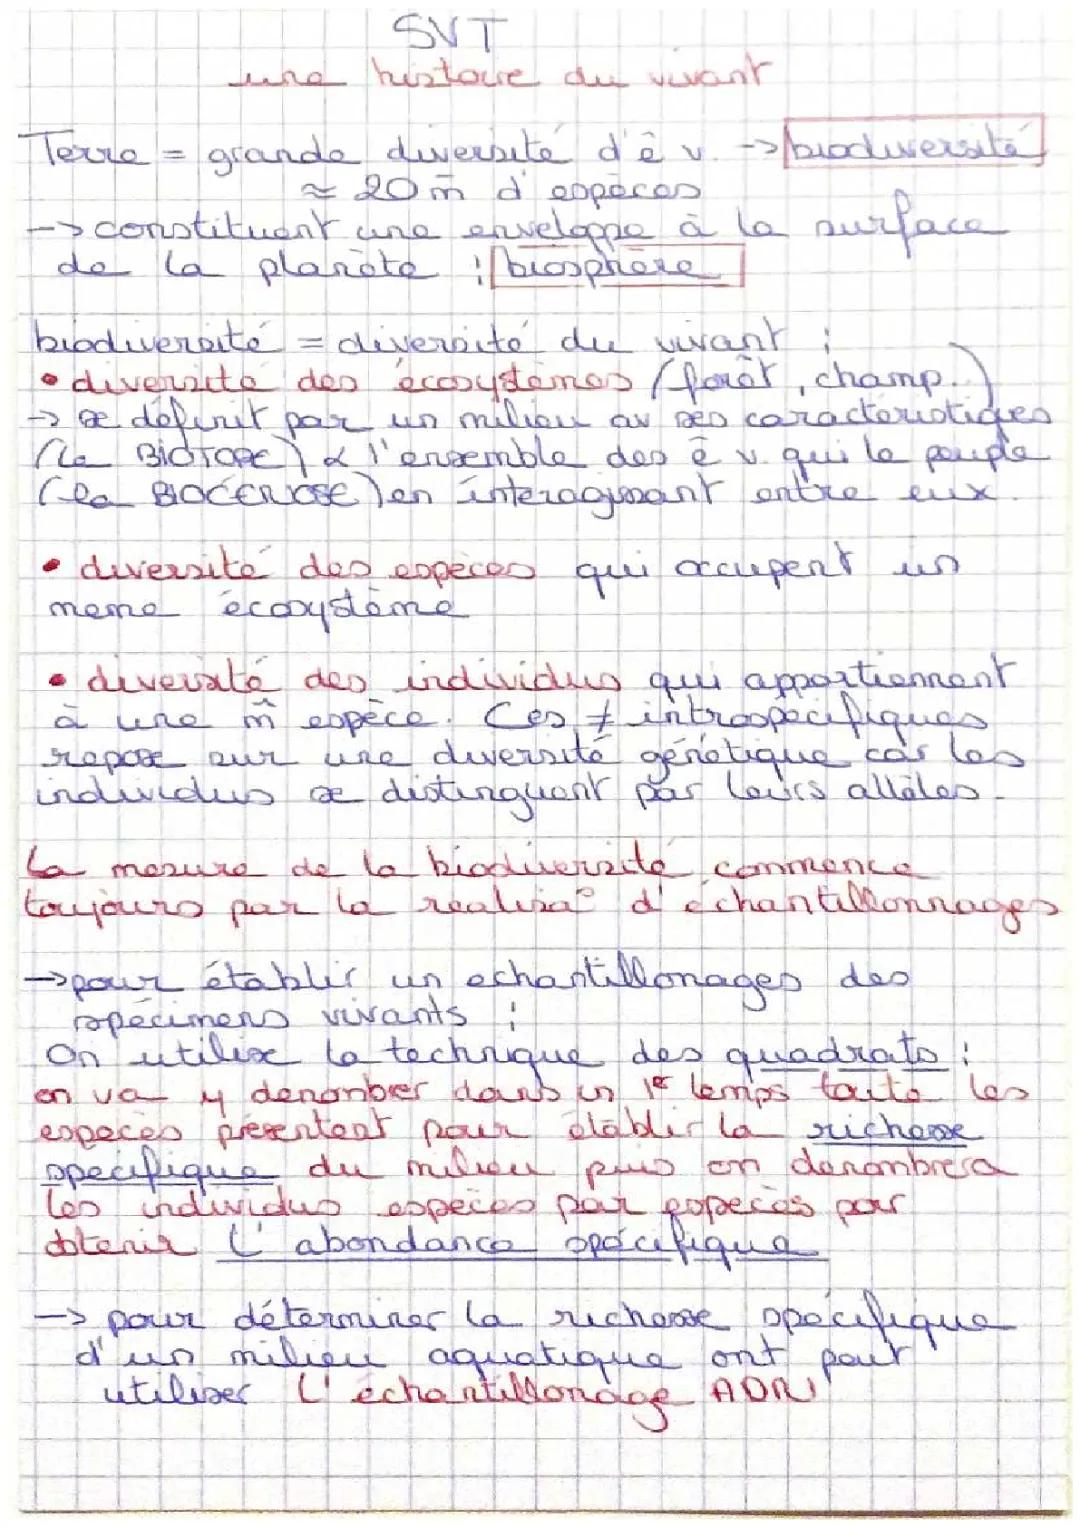 SVT
une histoire du vivant
Terre = grande diversité d'ê v. -> biodiversité
≈ 20 m̄ d'espèces
-> constituent une enveloppe à la surface
de la planète : biosphère
biodiversité = diversité du vivant :
• diversité des écosystèmes (forêt, champ..)
-> se définit par un milieu av ses caractéristiques
(le BIOTOPE) & l'ensemble des ê v. qui le peuple
(la BIOCENOSE) en interagissant entre eux.
• diversité des espèces qui occupent un
meme écosystème
• diversité des individus qui appartiennent
à une m̂ espèce. Ces ≠ intraspécifiques
repose sur une diversité génétique car les
individus se distinguent par leurs allèles.
La mesure de la biodiversité commence
toujours par la réalisa° d'échantillonnages
-> pour établir un echantillonages des
spécimens vivants :
On utilise la technique des quadrats :
on va y denombrer dans un 1er temps toute les
especes présentent pour établir la richesse
specifique du milieu puis on denombrera
les individus espèces par especes pour
obtenir l'abondance spécifique
-> pour déterminer la richesse spécifique
d'un milieu aquatique ont peut
utiliser l'échantillonage ADN